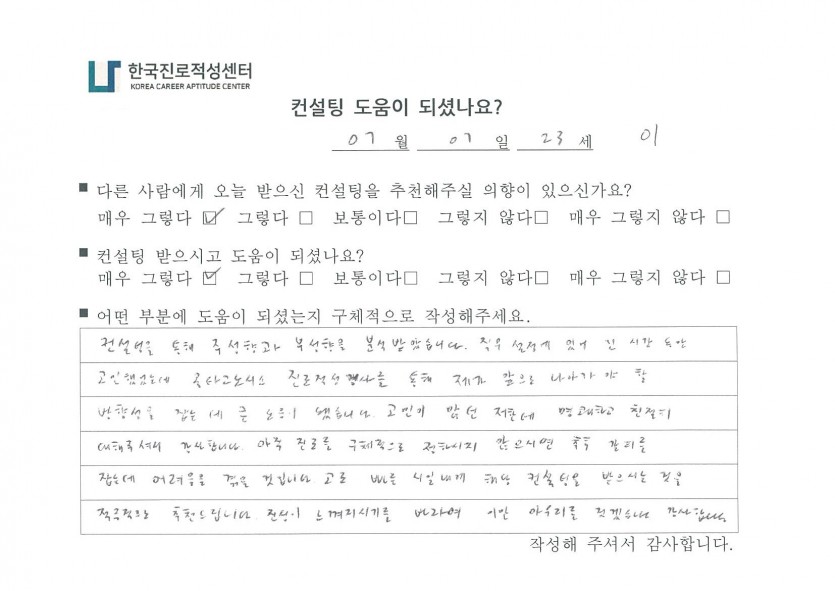 한국진로적성센터
KOREA CAREER APTITUDE CENTER
컨설팅 도움이 되셨나요?
07 월 07 일 23 세 이
■ 다른 사람에게 오늘 받으신 컨설팅을 추천해주실 의향이 있으신가요?
매우 그렇다 ☑ 그렇다 □ 보통이다□ 그렇지 않다□ 매우 그렇지 않다 □
■ 컨설팅 받으시고 도움이 되셨나요?
매우 그렇다 ☑ 그렇다 □ 보통이다□ 그렇지 않다□ 매우 그렇지 않다 □
■ 어떤 부분에 도움이 되셨는지 구체적으로 작성해주세요.
컨설팅을 통해 주성향과 부성향을 분석받았습니다. 직무 설정에 있어 긴 시간 동안
고민했었는데 진로적성검사를 통해 제가 앞으로 나아가야 할
방향성을 잡는 데 큰 도움이 됐습니다. 고민이 많던 저한테 명쾌하고 친절히
대해주셔서 감사합니다. 아직 진로를 구체적으로 정하시지 않으시면 갈피를
잡는데 어려움을 겪을 것입니다 고로 빠른 시일내에 해당 컨설팅을 받으시는 것을
적극적으로 추천드립니다. 진심이 느껴지시기를 바라며 이만 마무리를 짓겠습니다 감사합니다.
작성해 주셔서 감사합니다.